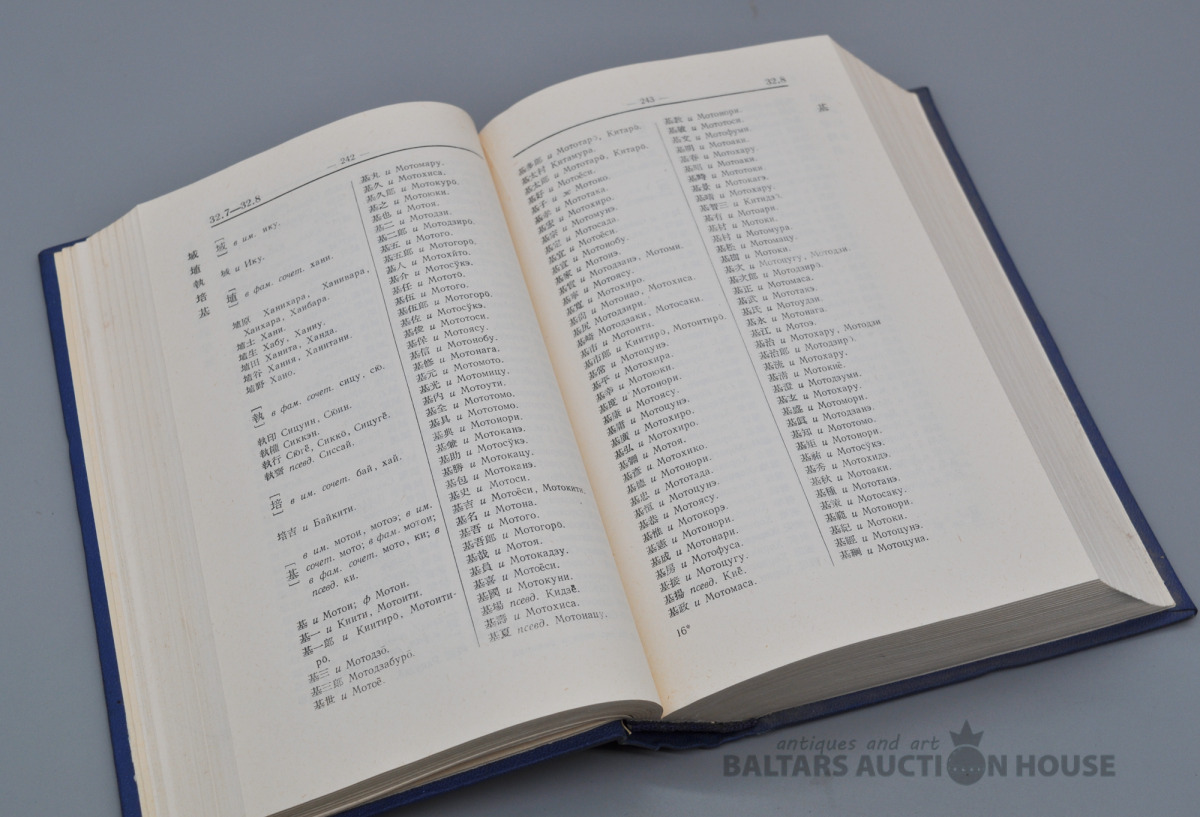 — 242 —
32.7—32.8
域
埴
執
培
基
[域] в им. ику.
域 и Ику.
[埴] в фам. сочет. хани.
埴原 Ханихара, Ханинара,
Ханхара, Ханбара.
埴土 Хани.
埴生 Хабу, Ханиу.
埴田 Ханита, Ханида.
埴谷 Хания, Ханитани.
埴野 Хано.
[執] в фам. сочет. сицу, сю.
執印 Сицуин, Сюин.
執行 Сюгё, Сиккō, Сицугё.
執齋 псевд. Сиссай.
[培] в им. сочет. бай, хай.
培吉 и Байкити.
[基] в им. мотои, мотоэ; в им.
сочет. мото; в фам. мотои;
в фам. сочет. мото, ки; в
псевд. ки.
基 и Мотои; ф Мотои.
基一 и Киити, Мотоити.
基一郎 и Киитирō, Мотоити-
рō.
基三 и Мотодзō.
基三郎 и Мотодзабурō.
基世 и Мотоё.
基丸 и Мотомару.
基久 и Мотохиса.
基久郎 и Мотокурō.
基之 и Мотоюки.
基也 и Мотоя.
基二 и Мотодзи.
基二郎 и Мотодзирō.
基五 и Мотого.
基五郎 и Мотогорō.
基人 и Мотохйто.
基介 и Мотосӯкэ.
基任 и Мототō.
基伍 и Мотого.
基伍郎 и Мотогорō.
基佐 и Мотосӯкэ.
基俊 и Мототоси.
基保 и Мотоясу.
基信 и Мотонобу.
基修 и Мотонага.
基元 и Мотомото.
基光 и Мотомицу.
基内 и Мотоути.
基全 и Мототомо.
基具 и Мототомо.
基典 и Мотонори.
基兼 и Мотоканэ.
基助 и Мотосӯкэ.
基勝 и Мотокацу.
基包 и Мотоканэ.
基史 и Мотоси.
基吉 и Мотоёси, Мотокити.
基名 и Мотона.
基吾 и Мотого.
基吾郎 и Мотогорō.
基哉 и Мотоя.
基員 и Мотокадзу.
基喜 и Мотоёси.
基國 и Мотокуни.
基場 псевд. Кидзё.
基壽 и Мотохиса.
基夏 псевд. Мотонацу.
— 243 —
32.8
基
基太郎 и Мототарō, Китарō.
基好 и Мотоёси.
基子 ж Мотоко.
基宏 и Мотохиро.
基宗 и Мотомунэ.
基定 и Мотосада.
基宜 и Мотоёси.
基宣 и Мотонобу.
基家 и Мотонэ.
基實 и Мотодзанэ, Мотоми.
基寛 и Мотохиро.
基尚 и Мотонао, Мотохиса.
基尻 Мотодзири.
基崎 Мотодзаки, Мотосаки.
基市 и Мотоити.
基市郎 и Киитирō, Мотоитирō.
基常 и Мотоцунэ.
基平 и Мотохира.
基幸 и Мотоюки.
基度 и Мотонори.
基康 и Мотоясу.
基庸 и Мотоцунэ.
基廣 и Мотохиро.
基弘 и Мотохиро.
基彌 и Мотоя.
基彦 и Мотохико.
基徳 и Мотонори.
基忠 и Мототада.
基恒 и Мотоцунэ.
基恭 и Мотоясу.
基惟 и Мотокорэ.
基憲 и Мотонори.
基成 и Мотонари.
基房 и Мотофуса.
基接 и Мотоцугу.
基揚 псевд. Киё.
基政 и Мотомаса.
16*
基教 и Мотонори.
基敏 и Мототоси.
基文 и Мотофуми.
基明 и Мотоаки.
基春 и Мотохару.
基昭 и Мотоаки.
基時 и Мототоки.
基景 и Мотокагэ.
基晴 и Мотохару.
基智三 и Китидзō.
基有 и Мотоари.
基材 и Мотоки.
基村 и Мотомура.
基松 и Мотомацу.
基樹 и Мотоки.
基次 и Мотоцугу, Мотодзи.
基次郎 и Мотодзирō.
基正 и Мотомаса.
基武 и Мототакэ.
基氏 и Мотоудзи.
基永 и Мотонага.
基江 и Мотоэ.
基治 и Мотохару, Мотодзи
基治郎 и Мотодзирō.
基流 и Мотохару.
基清 и Мотокиё.
基澄 и Мотодзуми.
基玄 и Мотохару.
基盛 и Мотомори.
基眞 и Мотодзанэ.
基知 и Мототомо.
基矩 и Мотонори.
基祐 и Мотосӯкэ.
基秀 и Мотохидэ.
基秋 и Мотоаки.
基種 и Мототанэ.
基策 и Мотосаку.
基範 и Мотонори.
基記 и Мотоки.
基經 и Мотоцунэ.
基綱 и Мотоцуна.
antiques and art
BALTARS AUCTION HOUSE